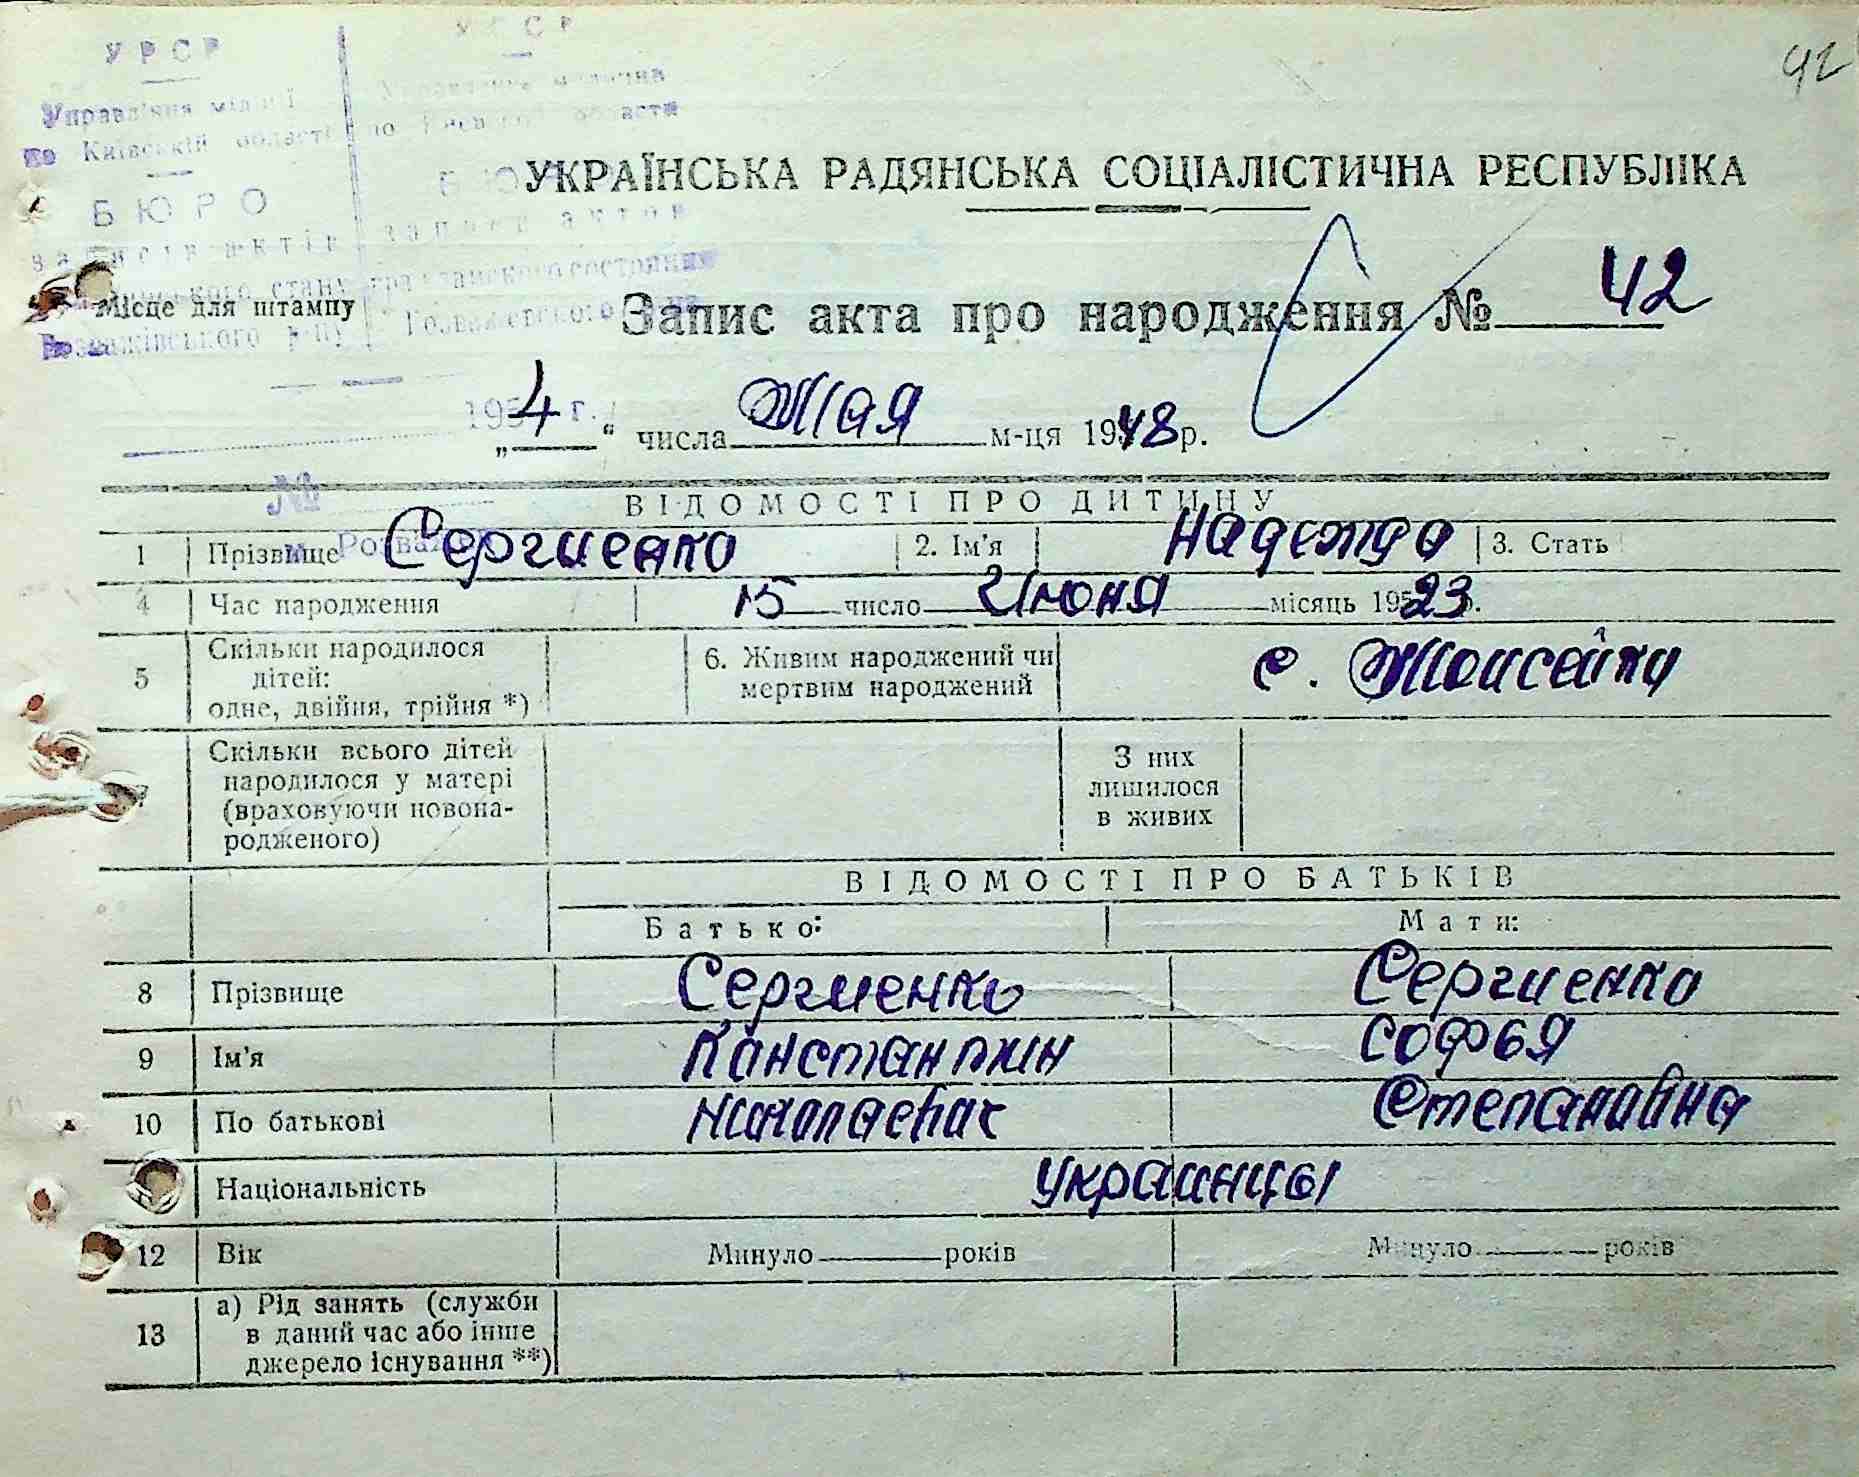 92
У Р С Р
У С С Р
Управління міліції
по Київській області
по Киевской области
УКРАЇНСЬКА РАДЯНСЬКА СОЦІАЛІСТИЧНА РЕСПУБЛІКА
БЮРО
записів актів
записи актов
гражданского состояния
Місце для штампу
Запис акта про народження № 42
Розважівського р-ну
Розважевского
195 г.
„4“ числа Мая м-ця 1948 р.
№
ВІДОМОСТІ ПРО ДИТИНУ
1 Прізвище Сергиенко 2. Ім'я Надежда 3. Стать
4 Час народження 15 число Июня місяць 1923 р.
5 Скільки народилося дітей: одне, двійня, трійня *) 6. Живим народжений чи мертвим народжений с. Мойсейки
Скільки всього дітей народилося у матері (враховуючи новонародженого) З них лишилося в живих
ВІДОМОСТІ ПРО БАТЬКІВ
Батько: Мати:
8 Прізвище Сергиенко Сергиенко
9 Ім'я Канстантин Софья
10 По батькові Николаевич Степановна
Національність Украинцы
12 Вік Минуло років Минуло років
13 а) Рід занять (служби в даний час або інше джерело існування **)